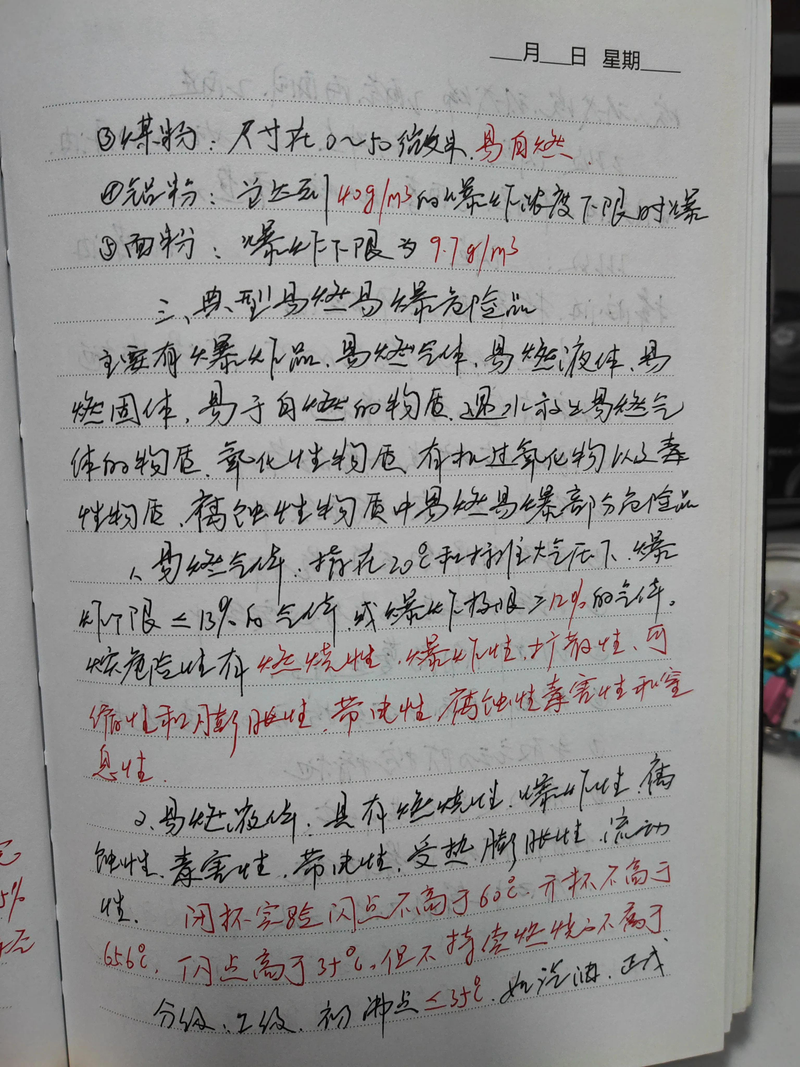 月 日 星期
③煤粉：尺寸在0～50微米，易自燃．
④铝粉：当达到40g/m³的爆炸浓度下限时爆
⑤面粉：爆炸下限为9.7g/m³
三、典型易燃易爆危险品
主要有爆炸品、易燃气体、易燃液体、易
燃固体、易于自燃的物质、遇水放出易燃气
体的物质、氧化性物质、有机过氧化物以及毒
性物质、腐蚀性物质中易燃易爆部分危险品
1、易燃气体：指在20℃和标准大气压下、爆
炸下限≤13%的气体，或爆炸极限≥12%的气体。
火灾危险性有燃烧性、爆炸性、扩散性、可
缩性和膨胀性、带电性、腐蚀性毒害性和窒
息性．
2、易燃液体：具有燃烧性、爆炸性、腐
蚀性、毒害性、带电性、受热膨胀性、流动
性． 闭杯实验闪点不高于60℃，开杯不高于
65.6℃，闪点高于35℃，但不持续燃烧 不高于
分级：Ⅰ级、初沸点≤35℃．如汽油、正戊
5%